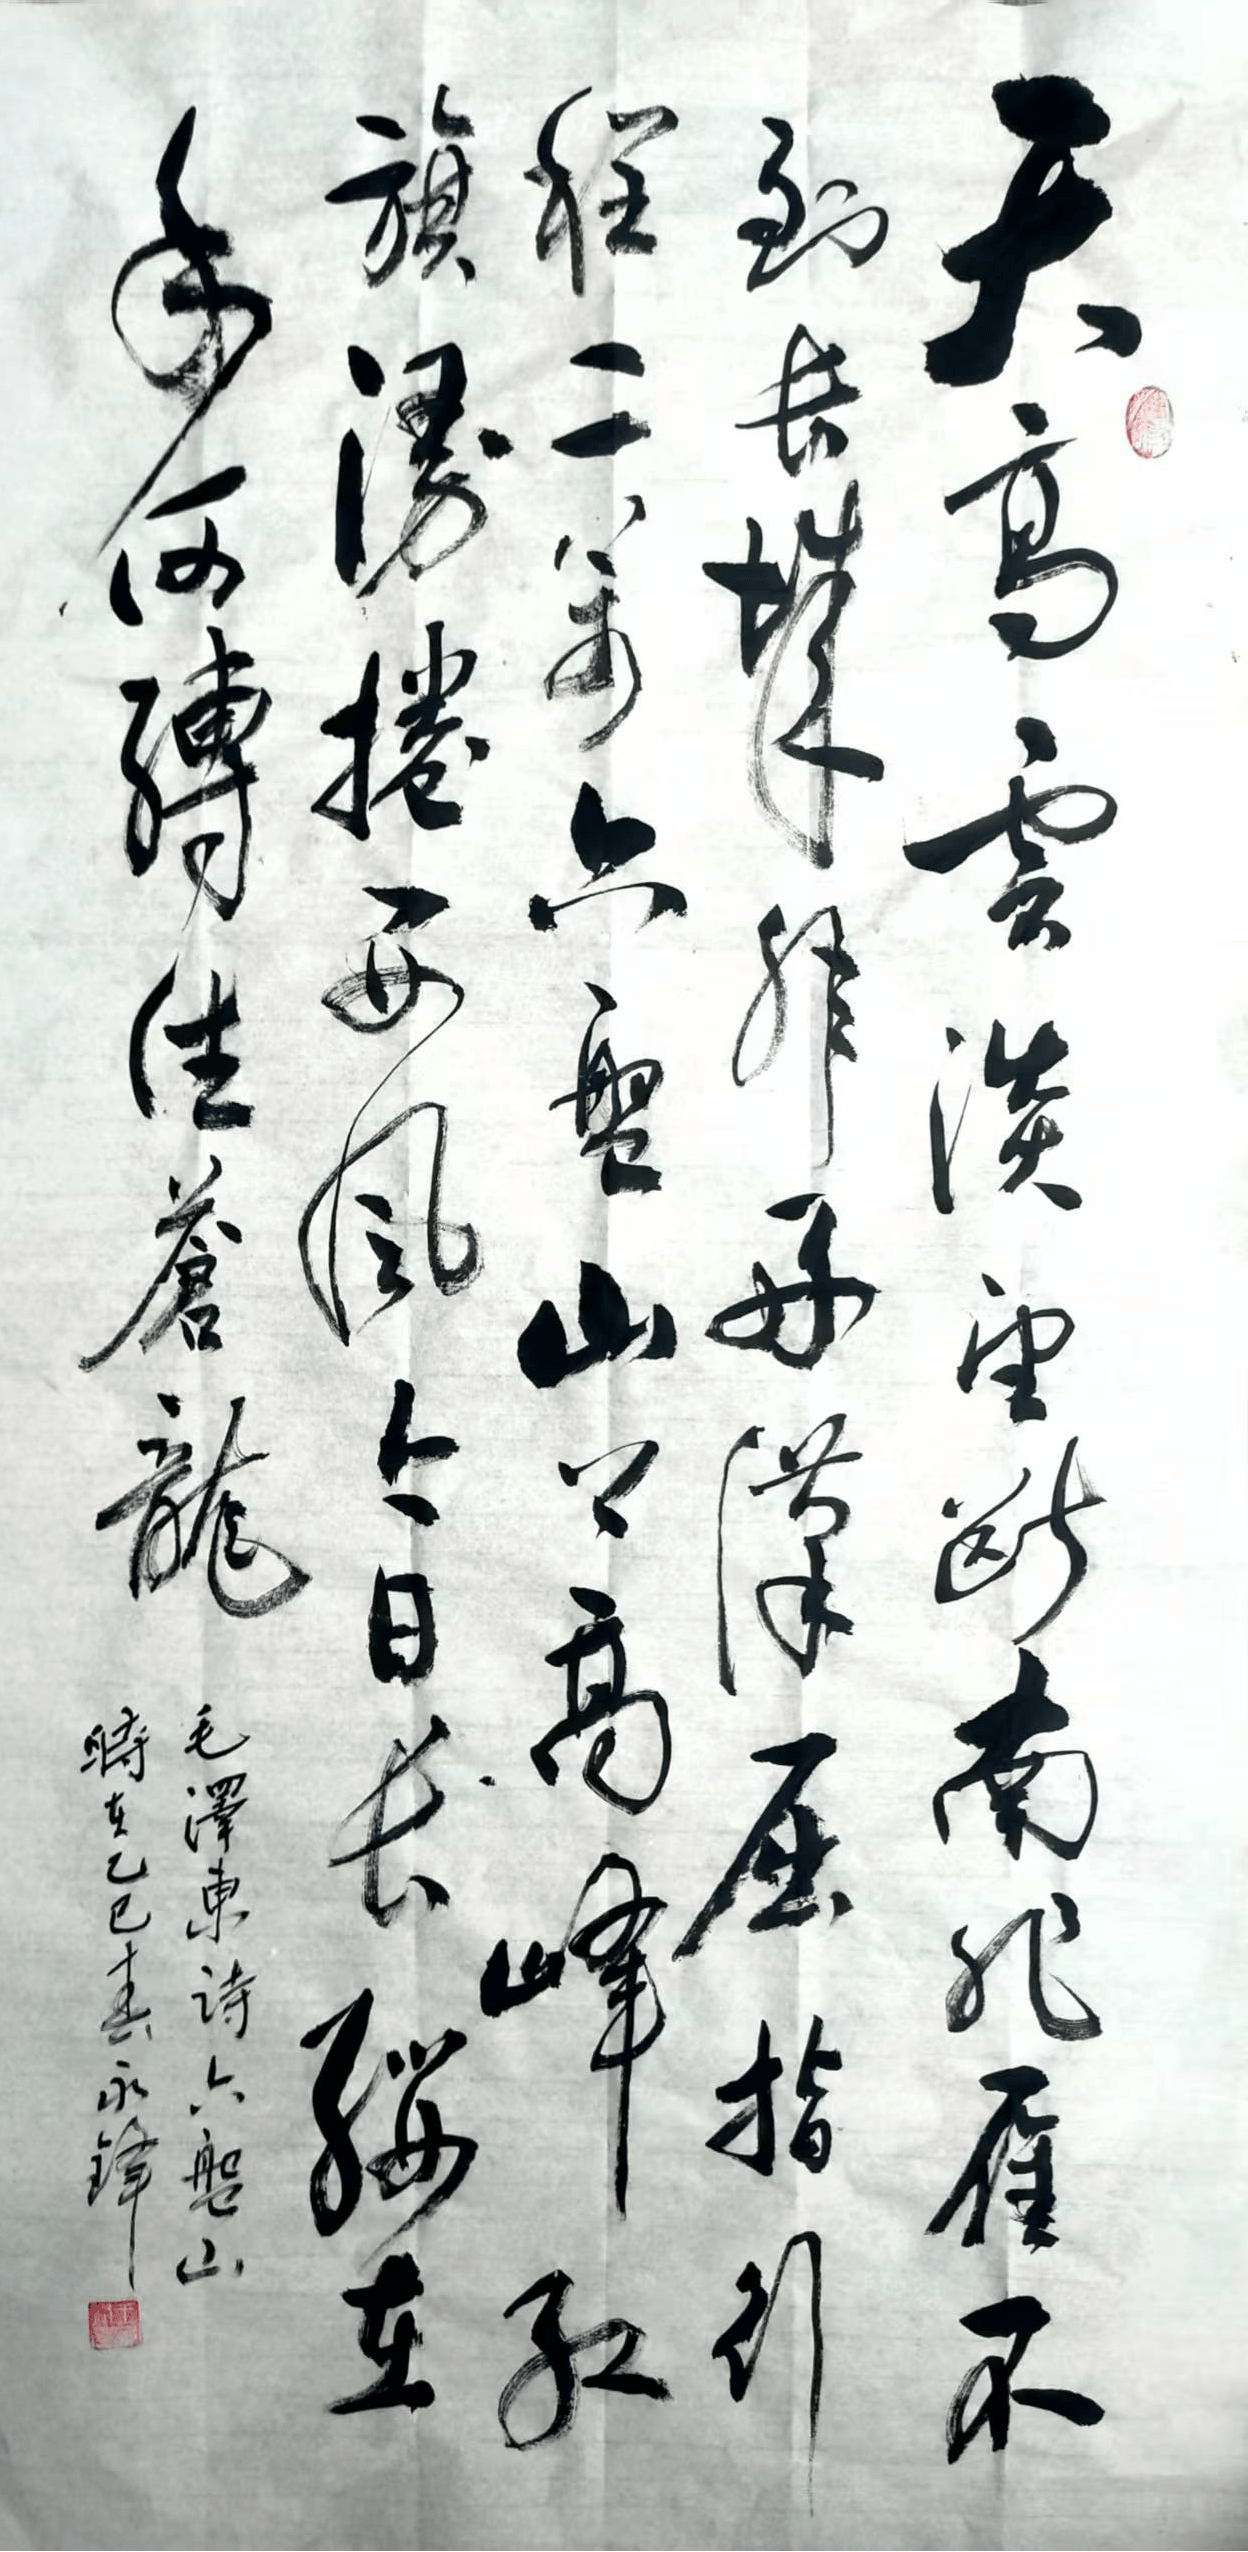 天高雲淡望断南飛雁不
到长城非好漢屈指行
程二萬六盤山上高峰紅
旗漫捲西風今日长纓在
手何縛住蒼龍
毛澤東詩六盤山
時在乙巳春永鋒